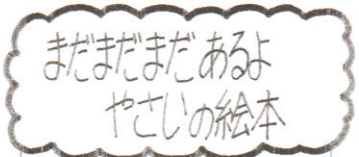 まだまだまだあるよ
やさいの絵本